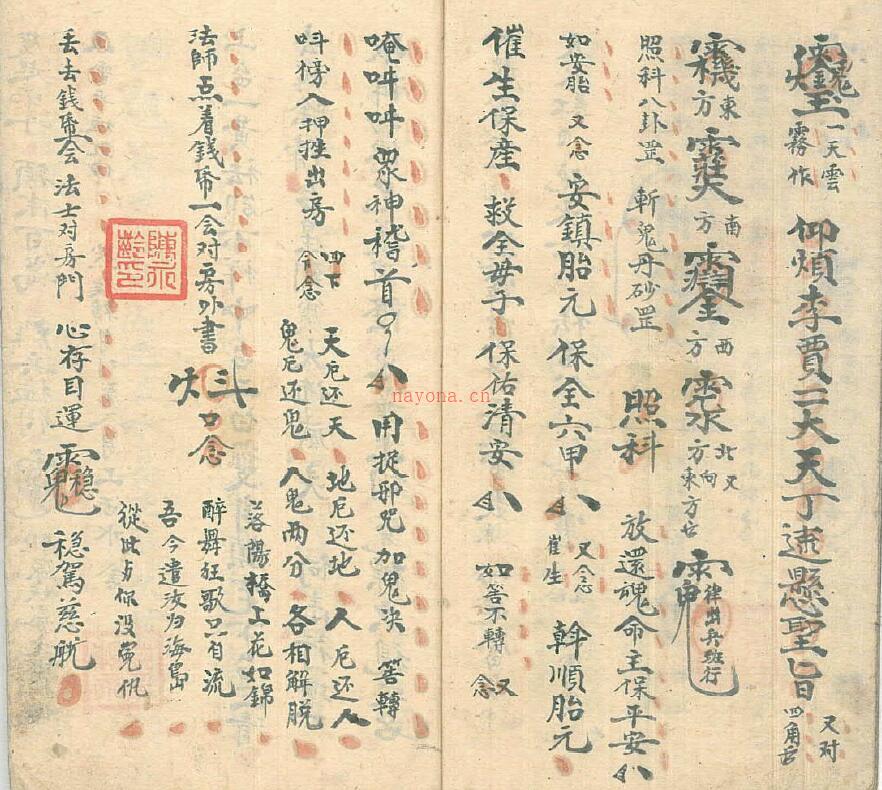 一天雲
霧作
仰煩李賈二大天丁速懸聖旨
又对
四角書
東
方
南
方
西
方
北又
方向
東方書
律出兵班行
照科八卦罡 斬鬼丹砂罡 照科 放還魂命主保平安
如安胎 又念 安鎮胎元 保全六甲 又念 催生 斡順胎元
催生保產 救全母子 保佑清安 如筶不轉 又念
唵吽吽 眾神稽首 用捉邪咒加鬼决 筶轉
呌傍人押挫出房 天厄还天 地厄还地 人厄还人
鬼厄还鬼 人鬼两分 各相解脱
法師点着錢幣一会对房外書 斗 火 口念
落陽橋上花如錦
醉舞狂歌只自流
吾今遣汝归海島
從此与你没冤仇
丢去錢幣会 法士对房門 心存目運 稳駕慈航
nayona.cn